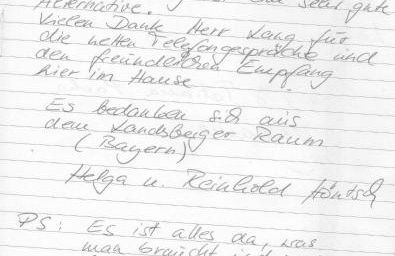 Alternative. sehr gute
Vielen Dank Herr Lang für
die netten Telefongespräche und
den freundlichen Empfang
hier im Hause
Es bedanken sich aus
dem Landsberger Raum
(Bayern)
Helga u. Reinhold
PS: Es ist alles da, was
man braucht